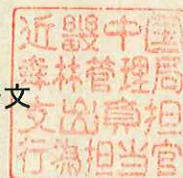 文
近畿中国
森林管理局
支出負担
行為担当官